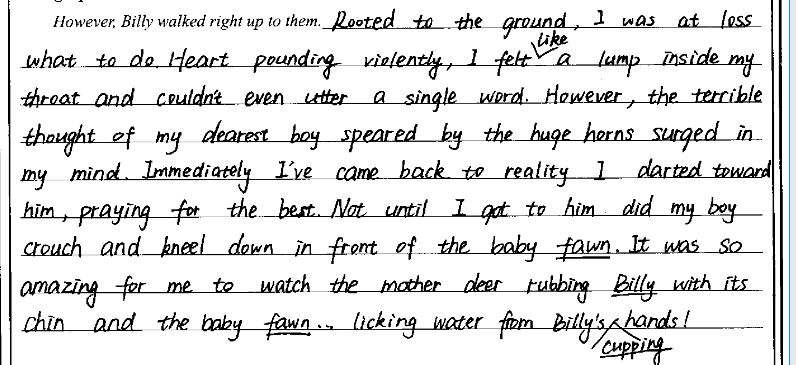 However, Billy walked right up to them. Rooted to the ground, I was at loss
what to do. Heart pounding violently, I felt like a lump inside my
throat and couldn't even utter a single word. However, the terrible
thought of my dearest boy speared by the huge horns surged in
my mind. Immediately I've came back to reality I darted toward
him, praying for the best. Not until I got to him did my boy
crouch and kneel down in front of the baby fawn. It was so
amazing for me to watch the mother deer rubbing Billy with its
chin and the baby fawn... licking water from Billy's cupping hands!